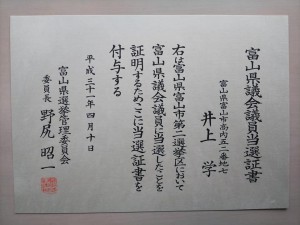 富山県議会議員当選証書
富山県富山市高内五二二番地七
井上 学
右は富山県富山市第二選挙区において
富山県議会議員に当選したことを
証明するためここに当選証書を
付与する
平成三十一年四月十日
富山県選挙管理委員会
委員長 野尻 昭一